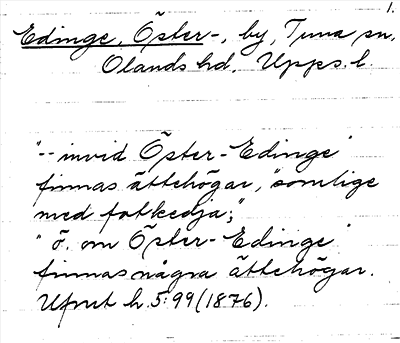 1.
Edinge, Öster-, by, Tuna sn,
Olands hd, Upps. l.
"-- invid Öster-Edinge"
finnas ättehögar, "somlige
med fotkedja;"
"ö. om Öster-Edinge"
finnas några ättehögar.
Ufmt h. 5:99 (1876).